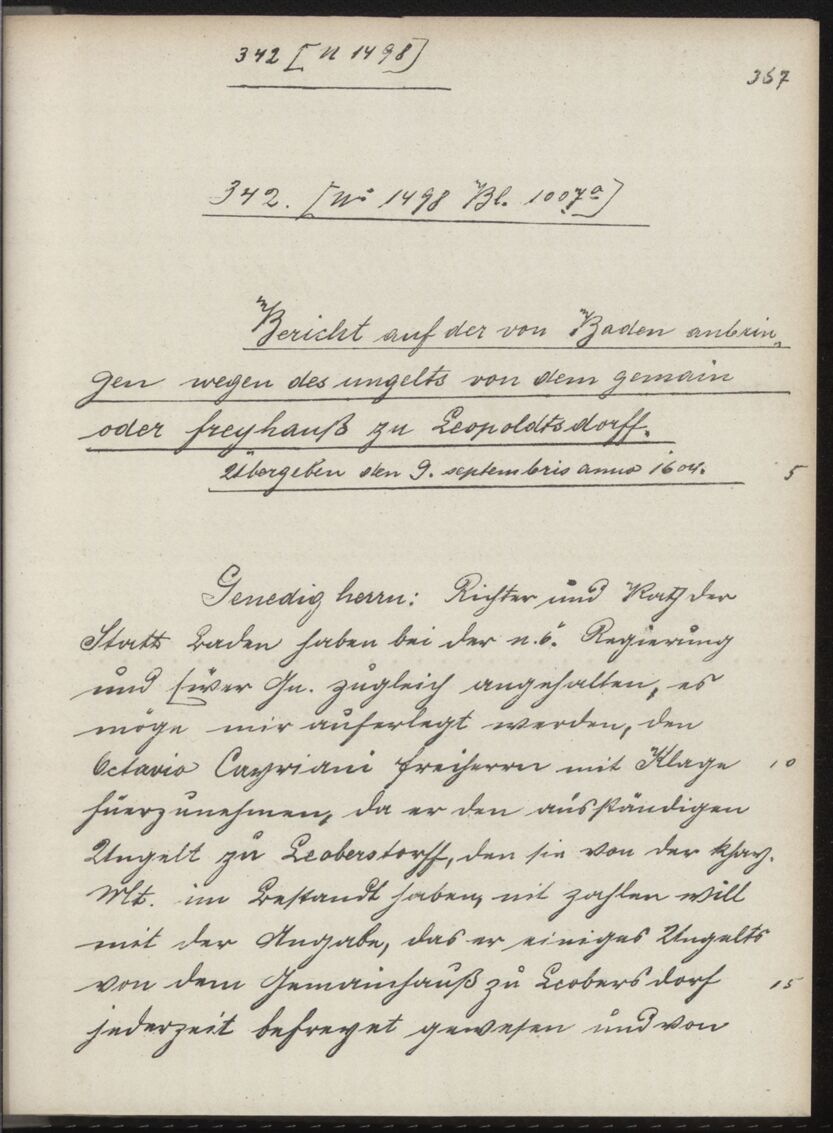 342 [N 1498]
367
342. [N° 1498 Bl. 1007a]
Bericht auf der von Baden anbrin„
gen wegen des ungelts von dem gemain
oder freyhauß zu Leopoldtsdorff.
Übergeben den 9. septembris anno 1604.
5
Genedig herrn: Richter und Rath der
Statt Baden haben bei der n.ö. Regierung
und Eüwer Gn. zugleich angehalten, es
möge mir auferlegt werden, den
Octavio Cavriani freiherrn mit Klage
10
fürzunehmen, da er den ausständigen
Ungelt zu Leoberstorff, den sie von der khay.
Mt. im Bestandt haben, nit zahlen will
mit der Angabe, das er einiges Ungelts
von dem Gemainhauß zu Leobersdorf
15
jederzeit befreyet gewesen und von